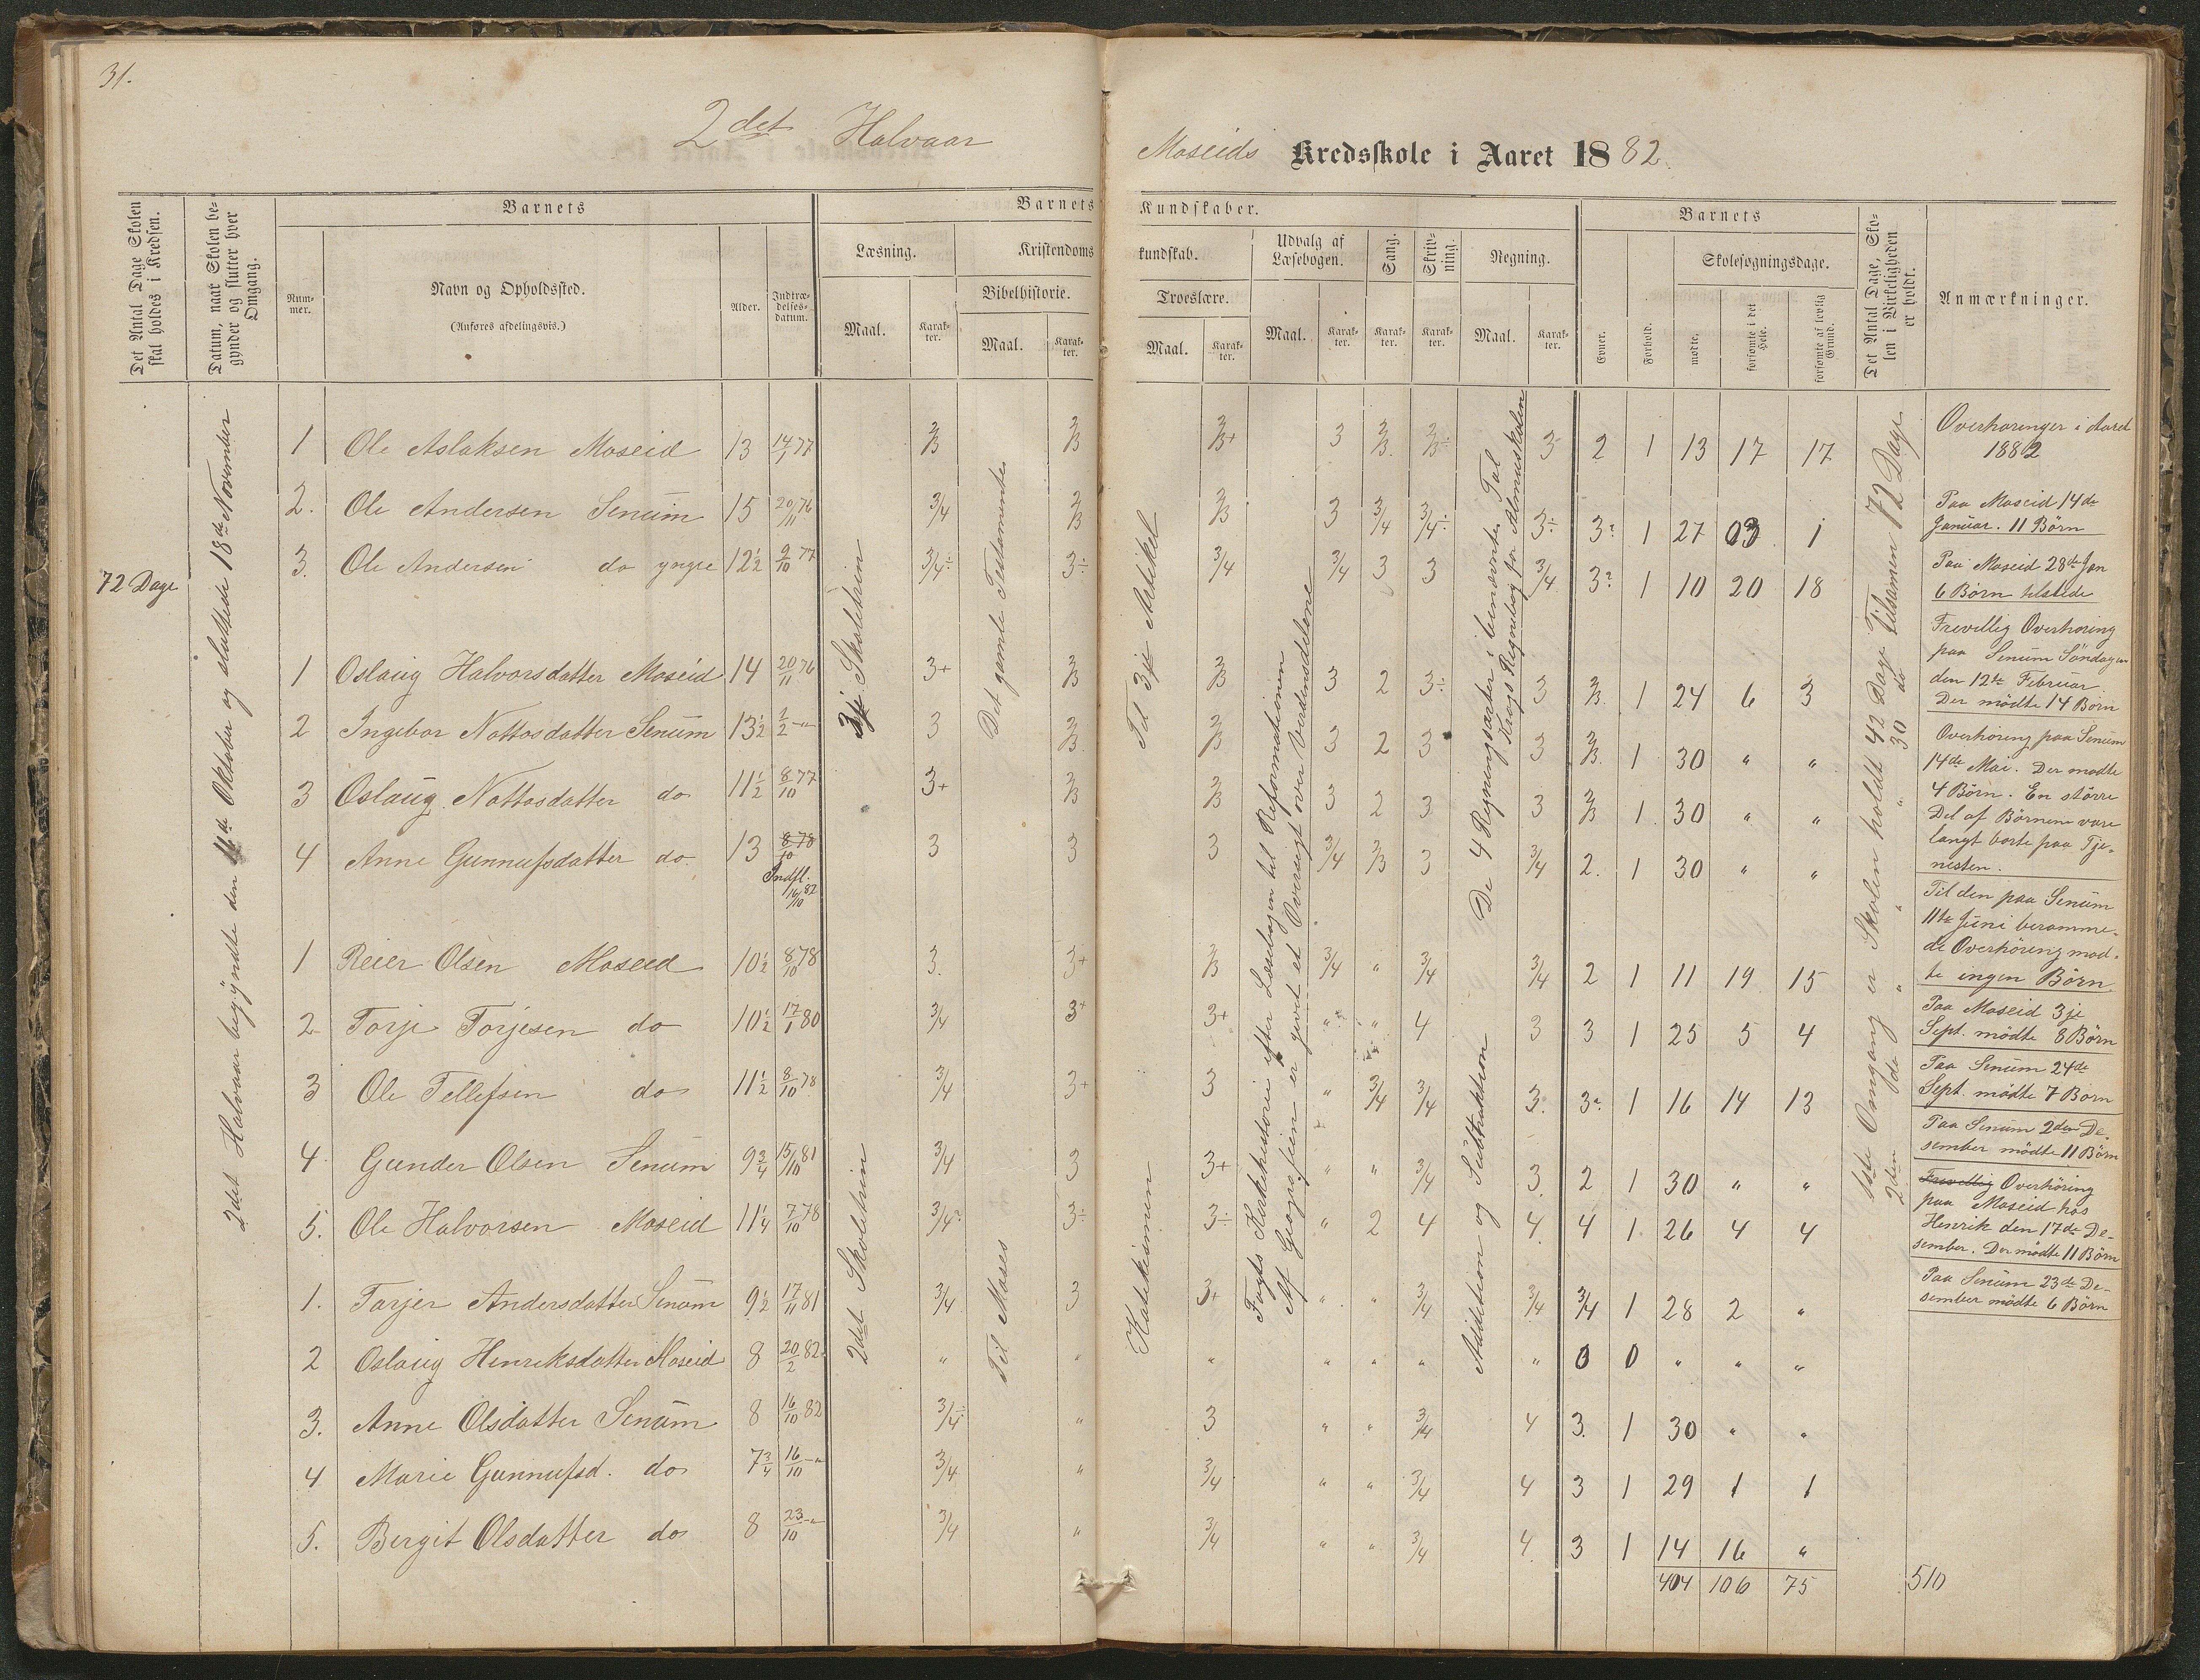 31.
2det Halvaar
Moseids Kredsskole i Aaret 1882.
Det Antal Dage Skolen skal holdes i Kredsen.
Datum, naar Skolen begynder og slutter hver Omgang.
Barnets
Nummer.
Navn og Opholdssted.
(Anføres afdelingsvis.)
Alder.
Indtrædelsesdatum.
Barnets Kundskaber.
Læsning.
Maal.
Karakter.
Kristendomskundskab.
Bibelhistorie.
Maal.
Karakter.
Troeslære.
Maal.
Karakter.
Udvalg af Læsebogen.
Maal.
Karakter.
Sang.
Karakter.
Skrivning.
Karakter.
Regning.
Maal.
Karakter.
Barnets
Evner.
Forhold.
Skolesøgningsdage.
mødte.
forsømte i det Hele.
forsømte af lovlig Grund.
Det Antal Dage, Skolen i Virkeligheden er holdt.
Anmærkninger.
72 Dage
2det Halvaar begyndte den 16de Oktober og sluttede 18de November
3je Skoletrin
Det gamle Testamente
Til 3je Artikel
Fogts Kirkehistorie efter Læsebogen til Reformationen
Af Geografien er givet et Oversigt over Verdensdelene
De 4 Regningsarter i benævnte Tal
Krogs Regnebog for Almuskolen
2det Skoletrin
Til Moses
Katekismen
Addition og Subtraktion
1ste Omgang er Skolen holdt 42 Dage Tilsamen 72 Dage
2den do " " " 30 do
1 Ole Aslaksen Moseid 13 14/1 77 2/3 2/3 2/3+ 3 2/3. 2/3÷ 3 2 1 13 17 17
2. Ole Andersen Senum 15 20/11 76 3/4 2/3 2/3 3 3/4 3/4÷ 3÷ 3? 1 27 03 1
3. Ole Andersen do yngre 12½ 9/10 77 3/4÷ 3÷ 3/4 3/4 3 3 3/4 3? 1 10 20 18
1 Oslaug Halvorsdatter Moseid 14 20/11 76 3+ 2/3 2/3 3 2 3÷ 3 2/3. 1 24 6 3
2 Ingebor Nottosdatter Senum 13½ 1/2 -"- 3 2/3. 2/3 3 2 3 3 2/3. 1 30 " "
3 Oslaug Nottosdatter do 11½ 8/10 77 3+ 2/3 2/3 3 2 3 3 2/3 1 30 " "
4 Anne Gunnufsdatter do. 13 8/10 78 3 3 3 3/4 2/3 3 3/4 2. 1 30 " "
Indfl. 16/10 82
1 Reier Olsen Moseid 10½ 8/10 78 3. 3+ 2/3 3/4 " 3/4 3/4 2 1 11 19 15
2 Torje Torjesen do 10½ 17/1 80 3/4 3+ 3+ " " 4 3 3 1 25 5 4
3 Ole Tellefsen do 11½ 8/10 78 3/4 3+ 3 " 3/4 3/4 3. 3? 1 16 14 13
4 Gunder Olsen Senum 9¾ 15/10 81 3/4 3 3+ " " 3/4 3. 2 1 30 " "
5. Ole Halvorsen Moseid 11¼ 7/10 78 3/4? 3÷ 3÷ " 2 4 4. 4 1 26 4 4
1. Tarjer Andersdatter Senum 9½ 17/11 81 3/4 3 3+ " " 3/4 3/4 3/4 1 28 2 "
2 Oslaug Henriksdatter Moseid 8 20/2 82. " " " " " " " 0 0 " " "
3. Anne Olsdatter Senum 8 16/10 82 3/4÷ " 3 " " 3/4 4 3. 1 30 " "
4 Marie Gunnufsd. do 7¾ 16/10 -"- 3/4 " 3/4 " " 3/4 4 3 1 29 1 1
5. Bergit Olsdatter do 8 23/10 -"- 3/4 " 3/4 " " 3/4 4. 3 1 14 16 "
404 106 75 510
Overhøringer i Aaret
1882
Paa Moseid 14de
Januar. 11 Börn
Paa Moseid 28de Jan
6 Börn tilstede
Frevillig Overhöring
paa Senum Söndagen
den 12te Februar
Der mödte 14 Börn
Overhöring paa Senum
14de Mai. Der mödte
4 Börn. En större
Del af Börnene vare
langt borte paa Tje-
nesten.
Til den paa Senum
11te Juni beramme-
de Overhöring möd-
te ingen Börn.
Paa Moseid 3je
Sept. mödte 8 Börn
Paa Senum 24de
Sept. mödte 7 Börn
Paa Senum 2den De-
sember mödte 11 Börn
Frevillig Overhöring
paa Moseid hos
Henrik den 17de De-
sember. Der mödte 11 Börn
Paa Senum 23de De-
sember mödte 6 Börn